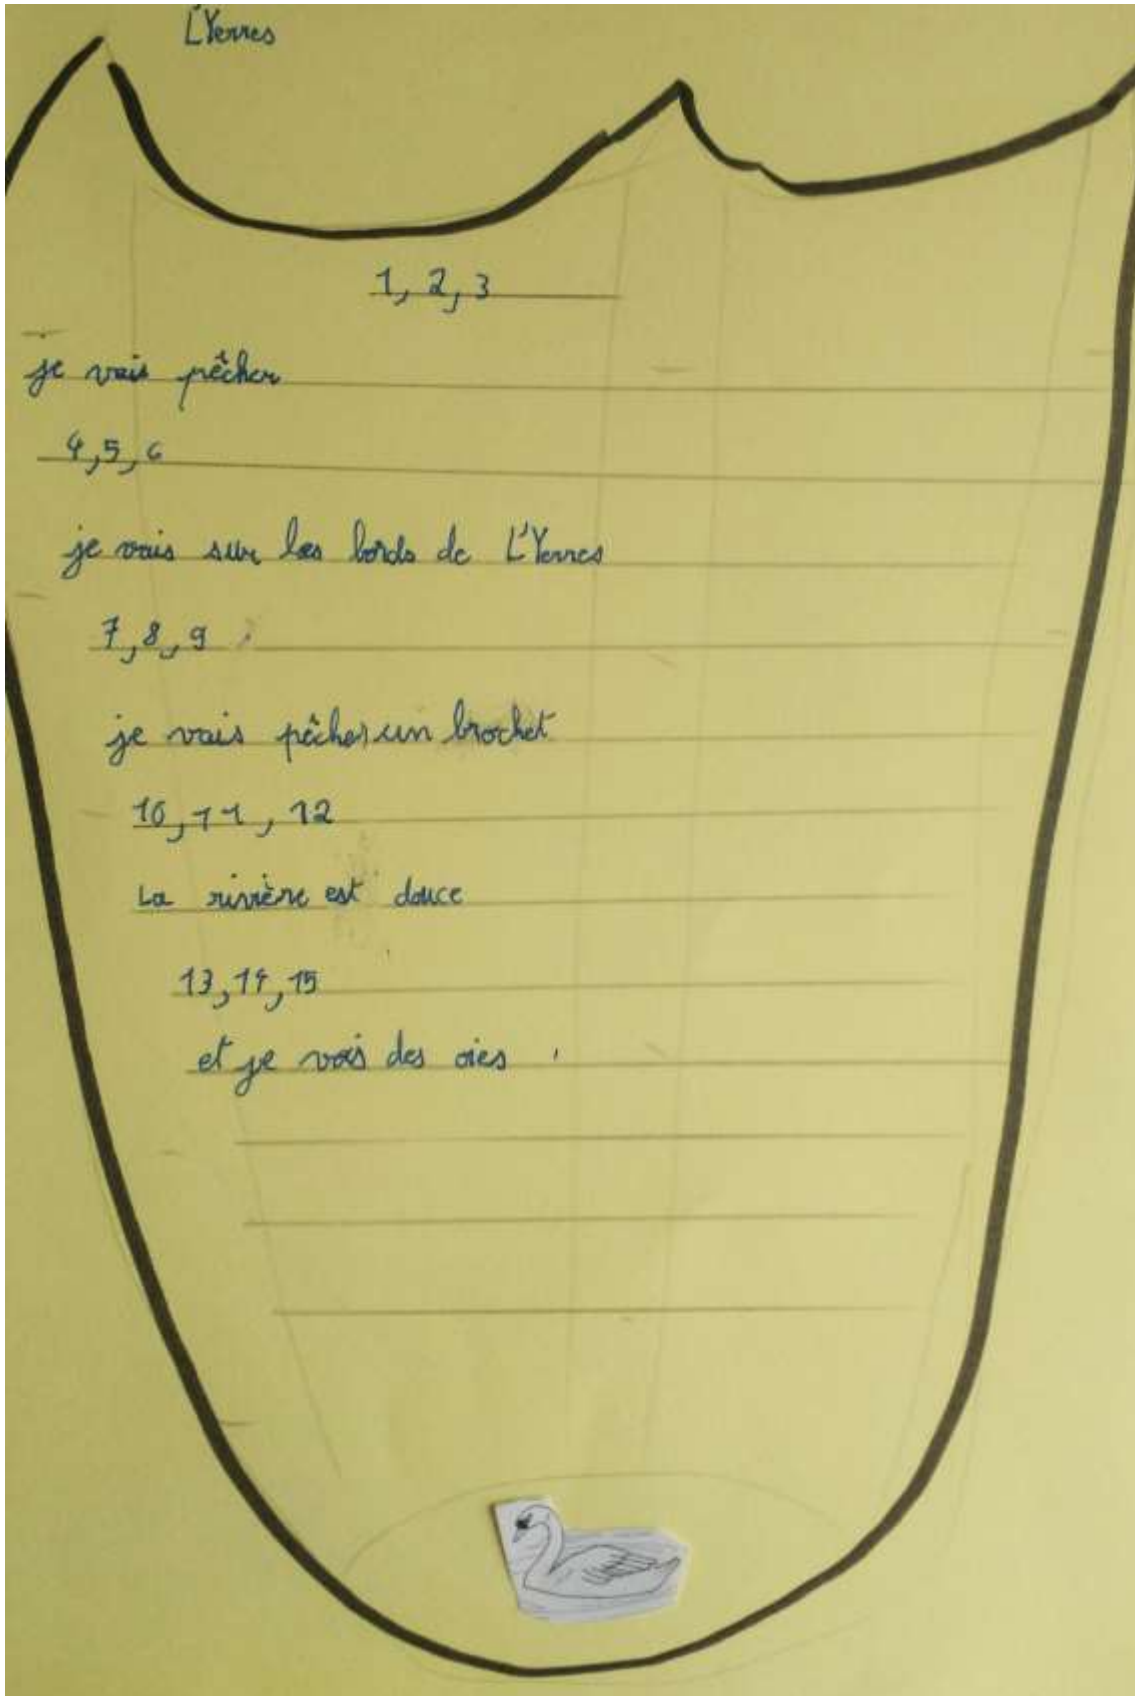 L'Yerres
1, 2, 3
je vais pêcher
4, 5, 6
je vais sur les bords de L'Yerres
7, 8, 9
je vais pêcher un brochet
10, 11, 12
La rivière est douce
13, 14, 15
et je vois des oies